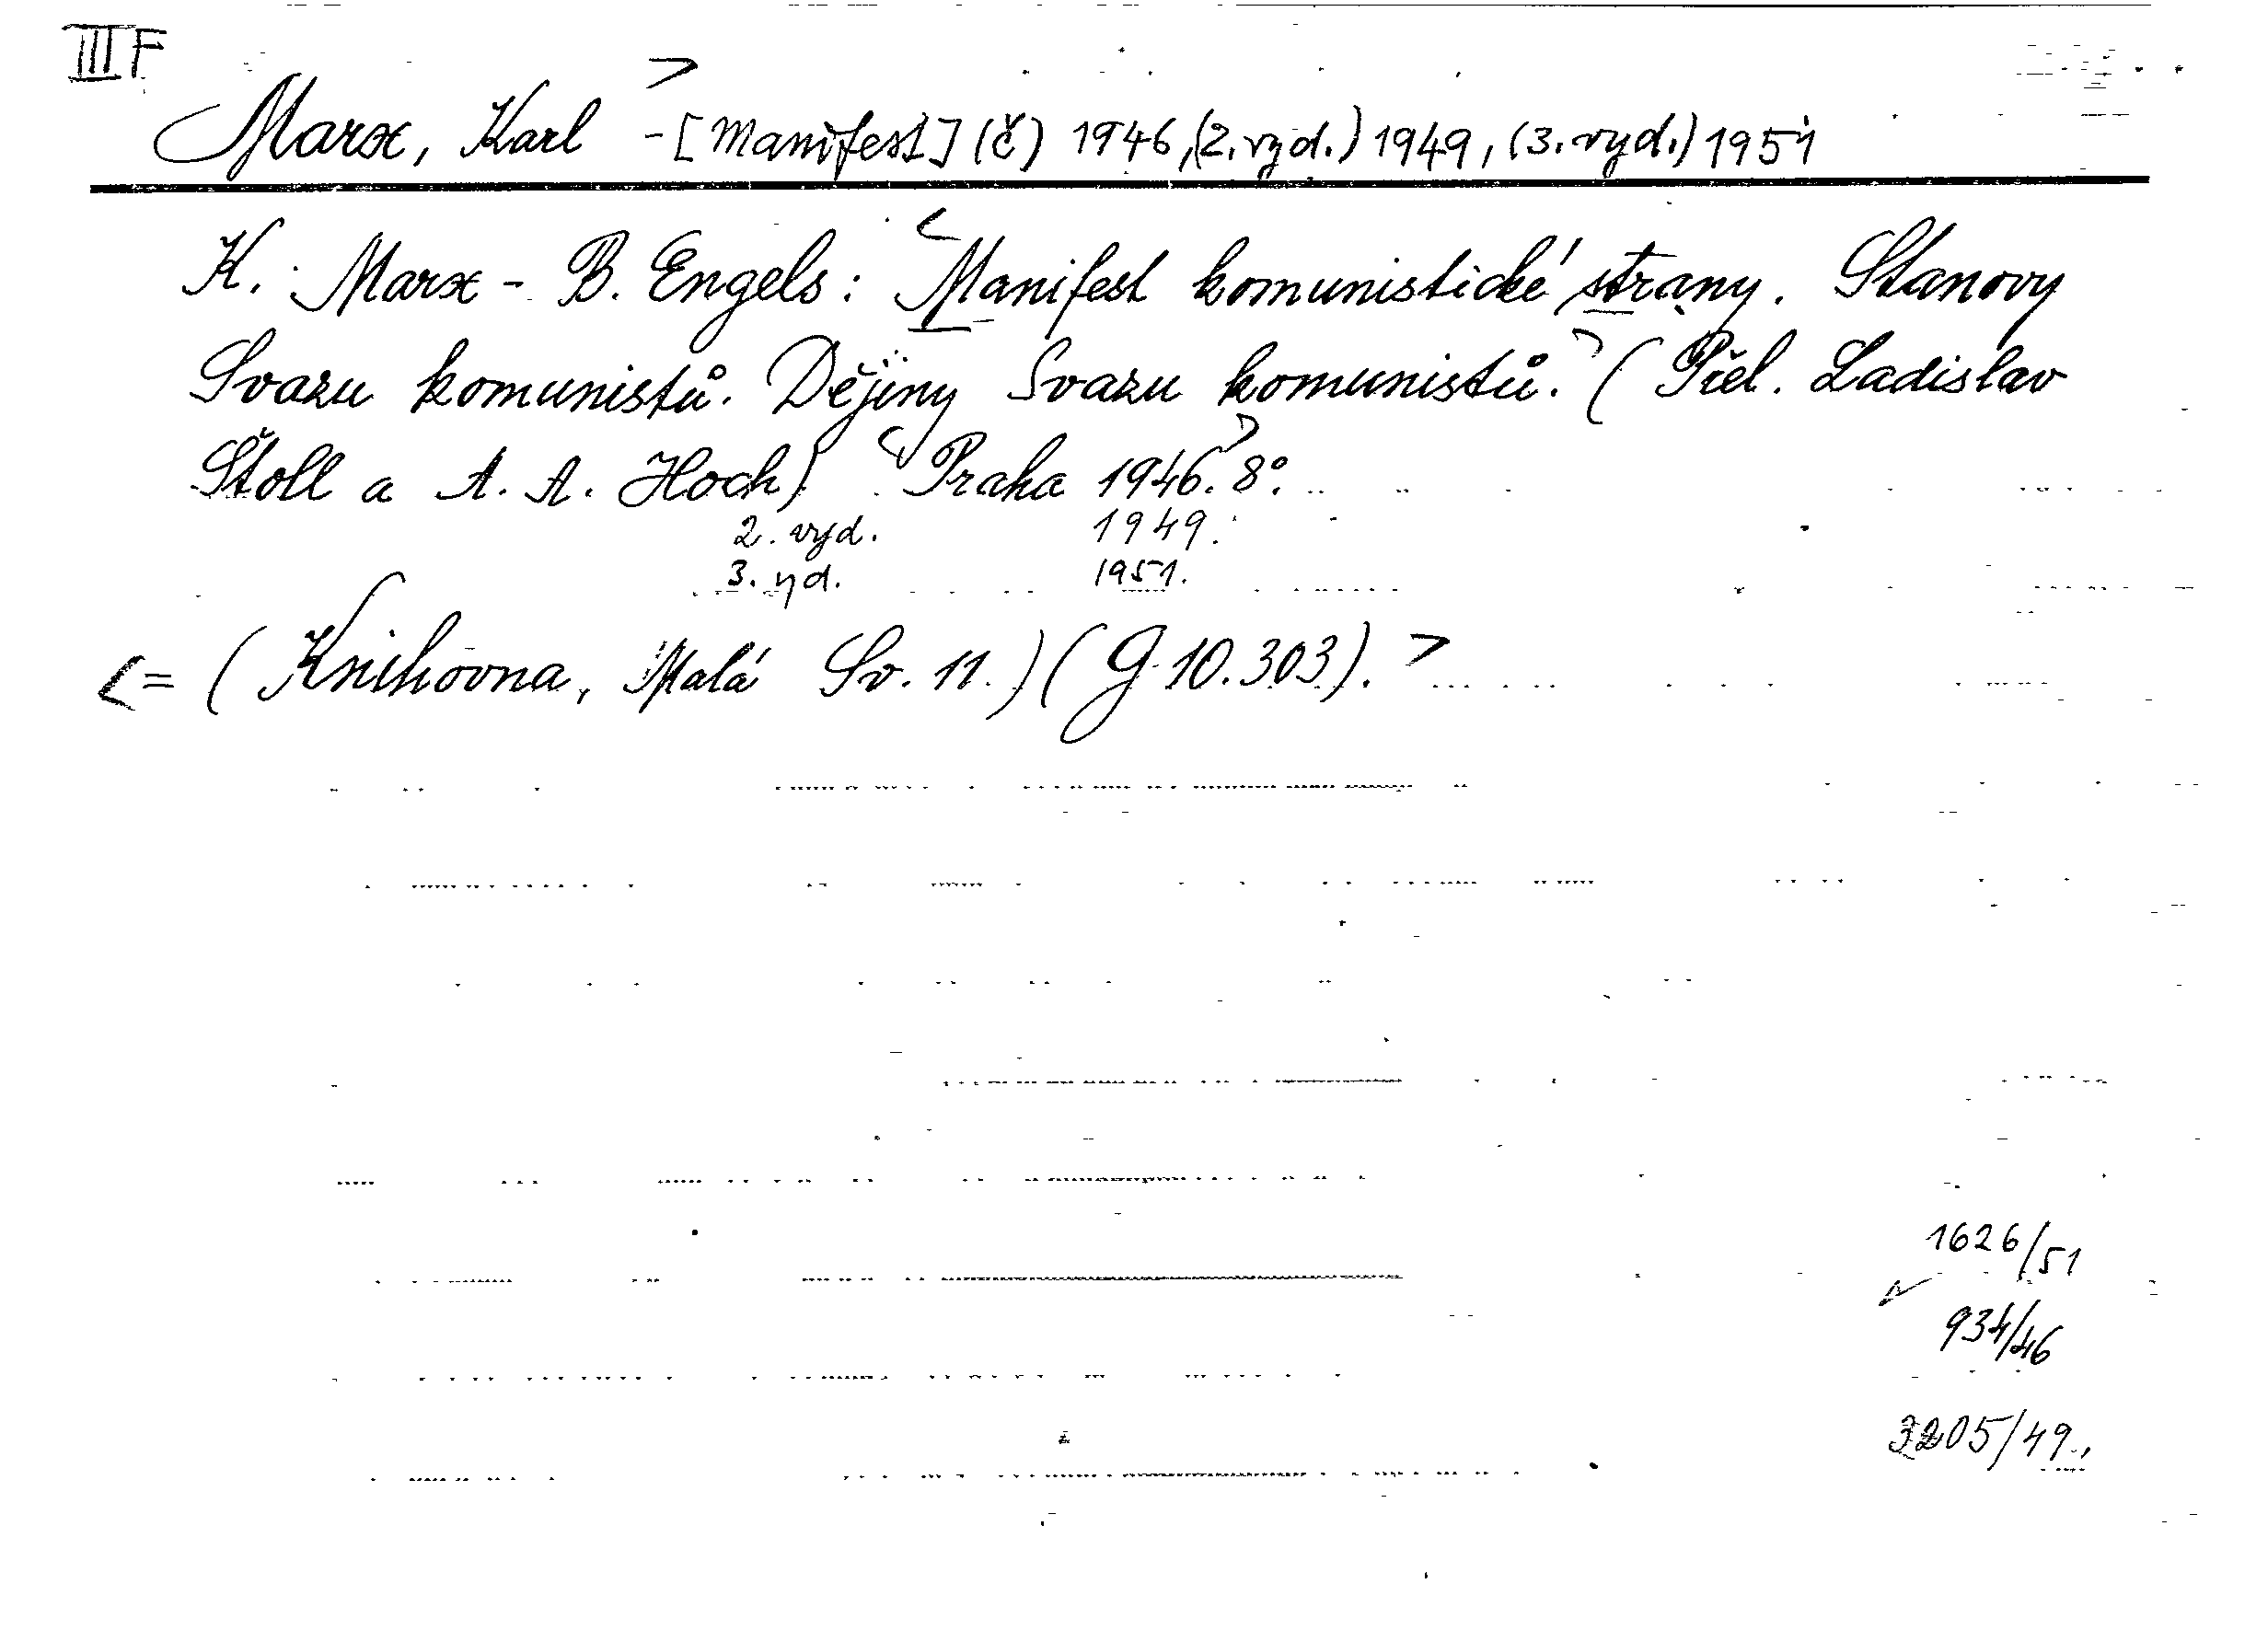 III F
Marx, Karl - [Manifest] (č) 1946, (2. vyd.) 1949, (3. vyd.) 1951
K. Marx - B. Engels: Manifest komunistické strany. Stanovy
Svazu komunistů. Dějiny Svazu komunistů. (Přel. Ladislav
Štoll a A. A. Hoch) Praha 1946. 8°.
2. vyd. 1949.
3. yd. 1951.
= (Knihovna, Malá Sv. 11.) (G 10.303).
1626/51
934/46
3205/49.